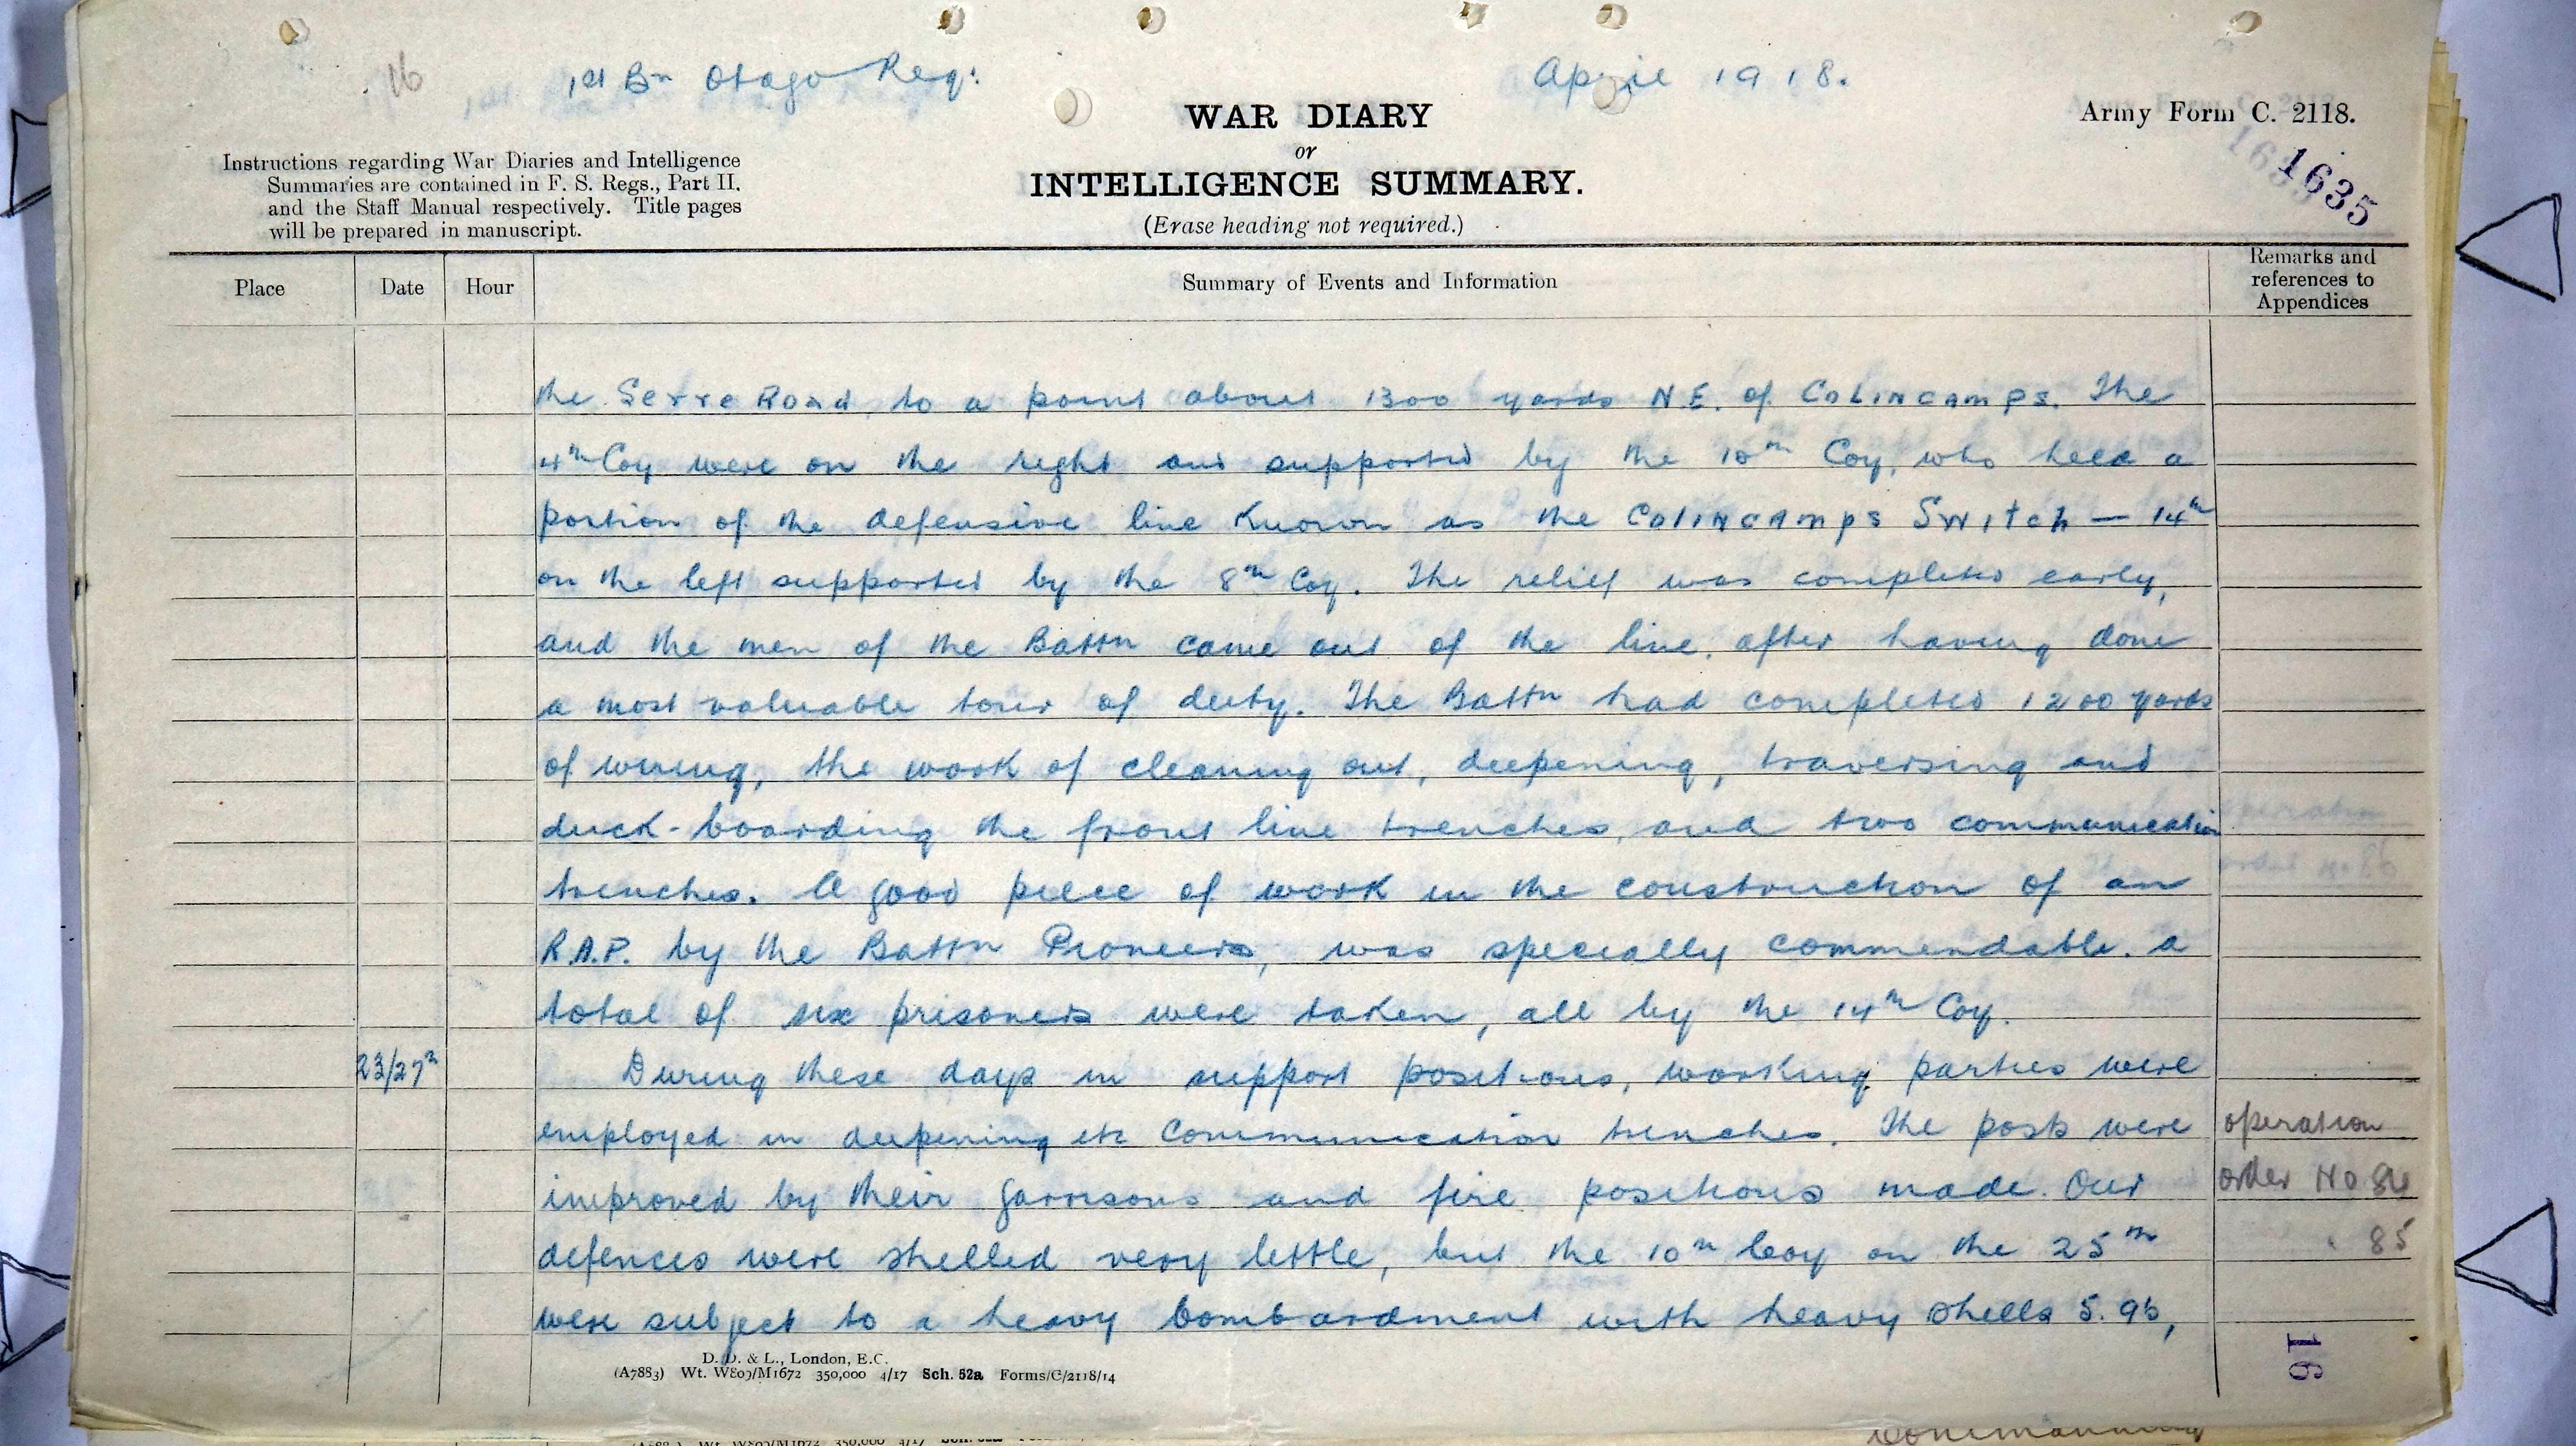 16
1st Bn Otago Reg:
April 1918.
WAR DIARY
or
INTELLIGENCE SUMMARY.
(Erase heading not required.)
Army Form C. 2118.
1635
Instructions regarding War Diaries and Intelligence
Summaries are contained in F. S. Regs., Part II.
and the Staff Manual respectively. Title pages
will be prepared in manuscript.
Place
Date
Hour
Summary of Events and Information
Remarks and
references to
Appendices
the Serre Road, to a point about 1300 yards N.E. of COLINCAMPS. The
4th Coy were on the right and supported by the 10th Coy, who held a
portion of the defensive line known as the COLINCAMPS Switch — 14th
on the left supported by the 8th Coy. The relief was completed early,
and the men of the Battn came out of the line, after having done
a most valuable tour of duty. The Battn had completed 1200 yards
of wiring, the work of cleaning out, deepening, traversing and
duck-boarding the front line trenches, and two communication
trenches. A good piece of work in the construction of an
R.A.P. by the Battn Pioneers, was specially commendable. a
total of six prisoners were taken, all by the 14th Coy.
23/27th
During these days in support positions, working parties were
employed in deepening etc communication trenches. The posts were
operation
improved by their garrisons and fire positions made. Our
order No 84
defences were shelled very little, but the 10th Coy on the 25th
" 85
were subject to a heavy bombardment with heavy shells 5.9s,
D. D. & L., London, E.C.
(A7883) Wt. W809/M1672 350,000 4/17 Sch. 52a Forms/C/2118/14
16